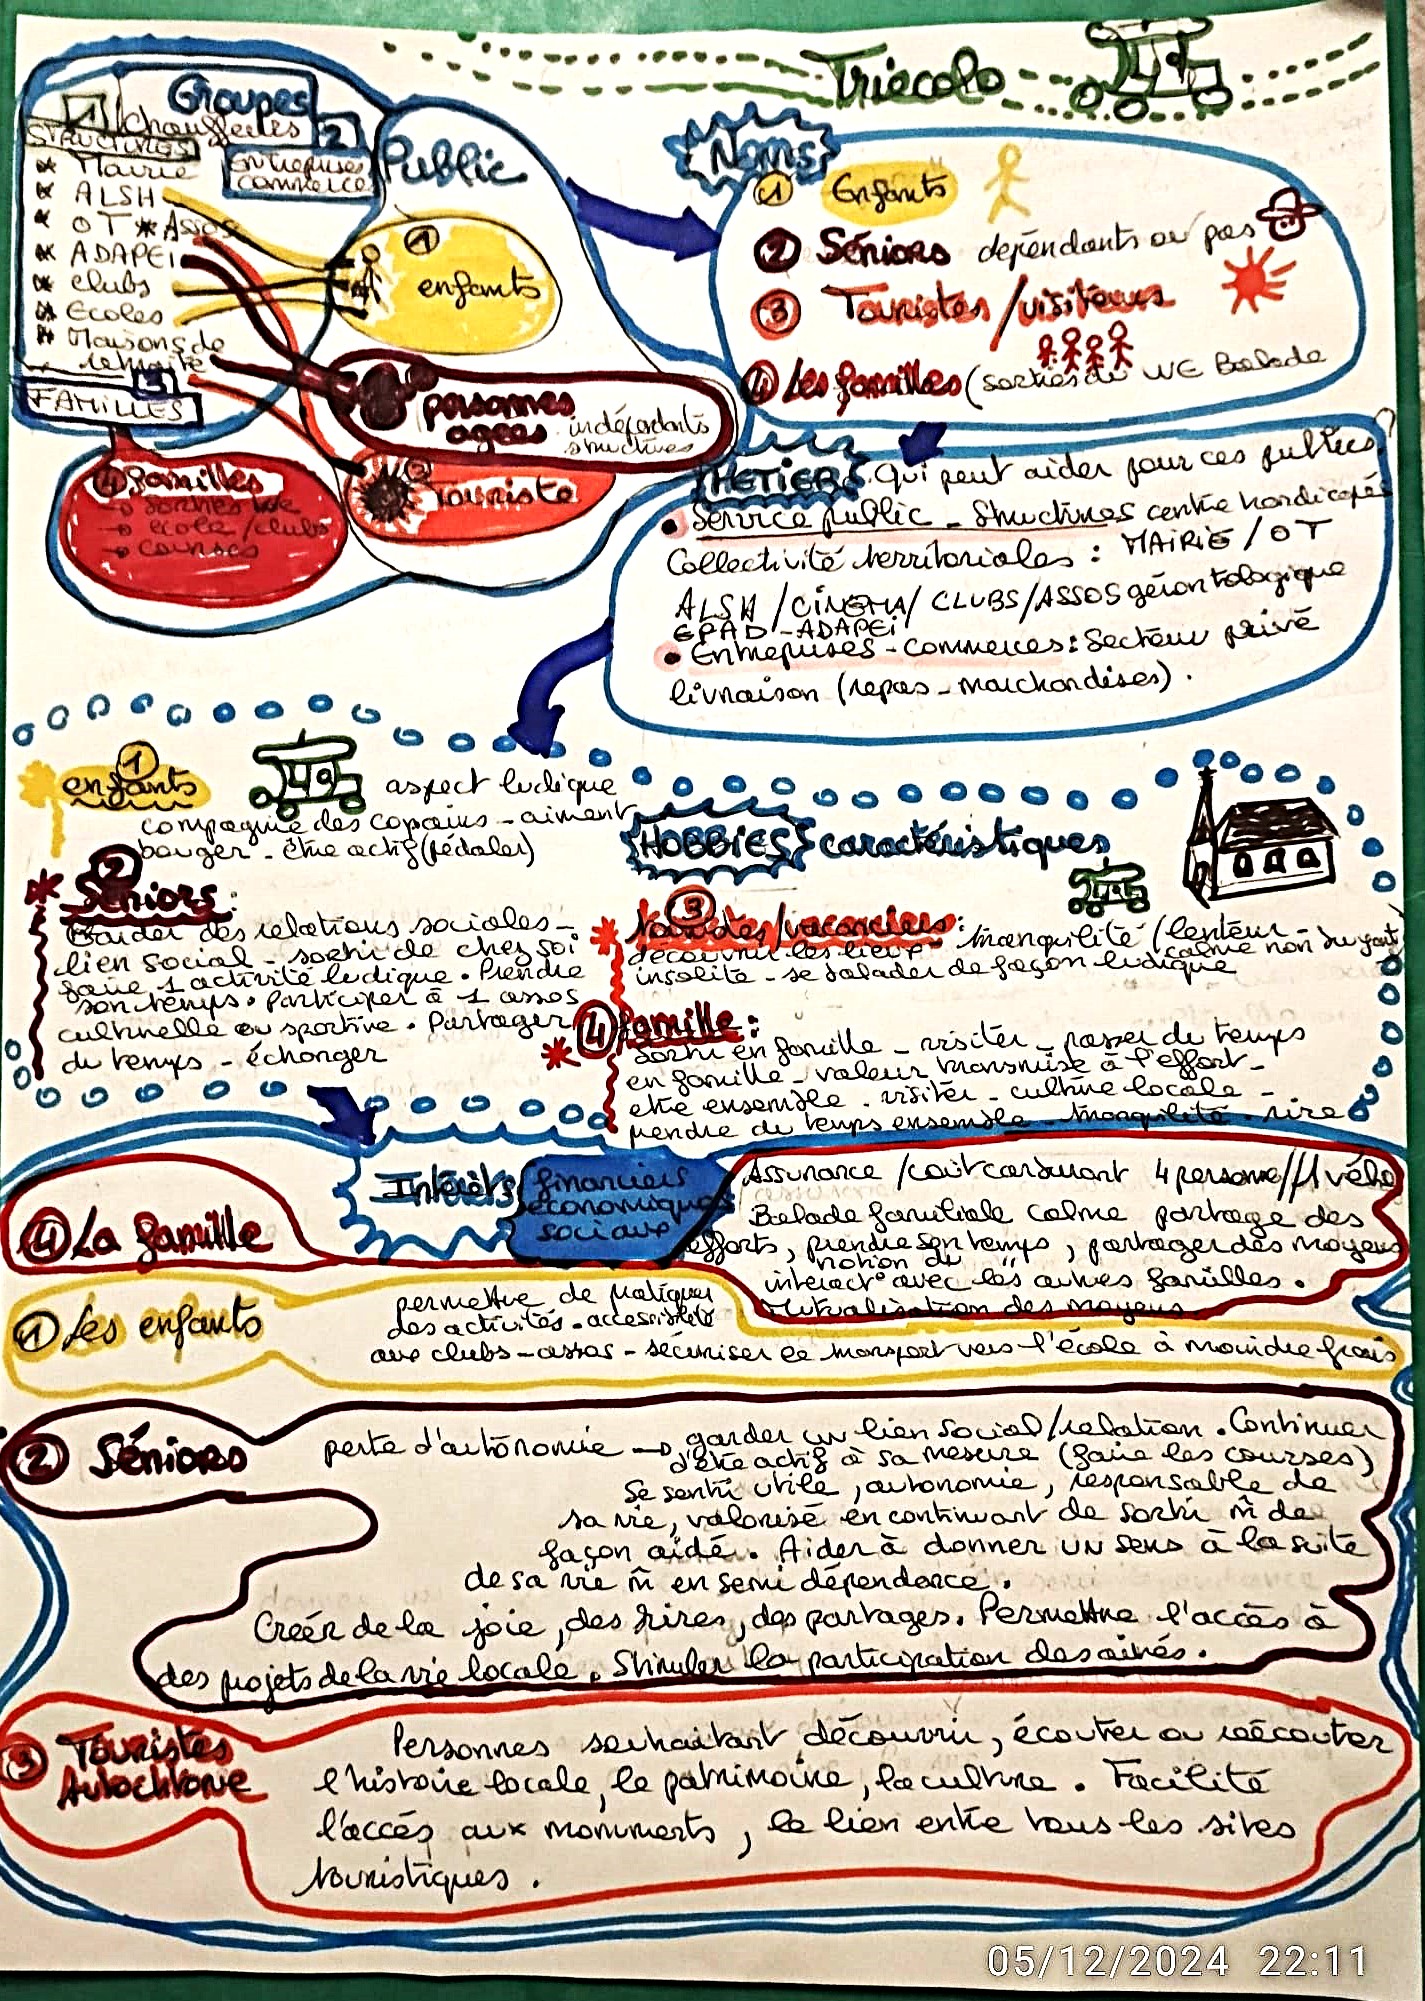 Triecolo
Groupes
1 Chauffeurs
2
STRUCTURES
Entreprises
commerce
* Mairie
* ALSH
* OT * Assos
* ADAPEI
* clubs
* Ecoles
* Maisons de
retraite
3
FAMILLES
Public
1
enfants
personnes
agées indépendants
structures
Touriste
4 familles
→ sorties WE
→ école/clubs
→ courses
Noms
1 Enfants
2 Séniors dépendants ou pas
3 Touristes/visiteurs
4 Les familles (sorties du WE Balade
METIERS. Qui peut aider pour ces publics?
• Service public - Structures centre handicapés
Collectivité territoriales : MAIRIE / OT
ALSH / CINEMA / CLUBS/ASSOS gérontologique
EPAD - ADAPEI
• Entreprises - Commerces : Secteur privé
livraison (repas - marchandises).
1
enfants aspect ludique
compagnie des copains - aiment
bouger - être actif (pédaler)
2
Séniors :
Garder des relations sociales -
lien social - sortir de chez soi
faire 1 activité ludique. Prendre
son temps. Participer à 1 assos
culturelle ou sportive. Partager
du temps - échanger
HOBBIES caractéristiques
3
Touristes/vacanciers : tranquilité (lenteur -
découvrir les lieux calme non bruyant
insolite - se balader de façon ludique
4 famille :
Sortir en famille - visiter - passer du temps
en famille - valeur transmise à l'effort -
être ensemble - visiter - culture locale -
prendre du temps ensemble - tranquilité - rire
Intérêts financiers
économiques
sociaux
4 La famille
Assurance / coût carburant 4 personnes // 1 vélo
Balade familiale calme partage des
efforts, prendre son temps, partager des moyens
notion du
interact° avec les autres familles.
Mutualisation des moyens.
1 Les enfants
permettre de pratiquer
des activités - accessibilité
aux clubs - assos - sécuriser le transport vers l'école à moindre frais
2 Séniors
perte d'autonomie → garder un lien social/relation. Continuer
d'être actif à sa mesure (faire les courses)
Se sentir utile, autonomie, responsable de
sa vie, valorisé en continuant de sortir m̂ de
façon aidé. Aider à donner un sens à la suite
de sa vie m̂ en semi dépendance.
Créer de la joie, des rires, des partages. Permettre l'accès à
des projets de la vie locale. Stimuler la participation des ainés.
3 Touristes
Autochtone
Personnes souhaitant découvrir, écouter ou réécouter
l'histoire locale, le patrimoine, la culture. Facilité
l'accés aux monuments, le lien entre tous les sites
touristiques.
05/12/2024 22:11